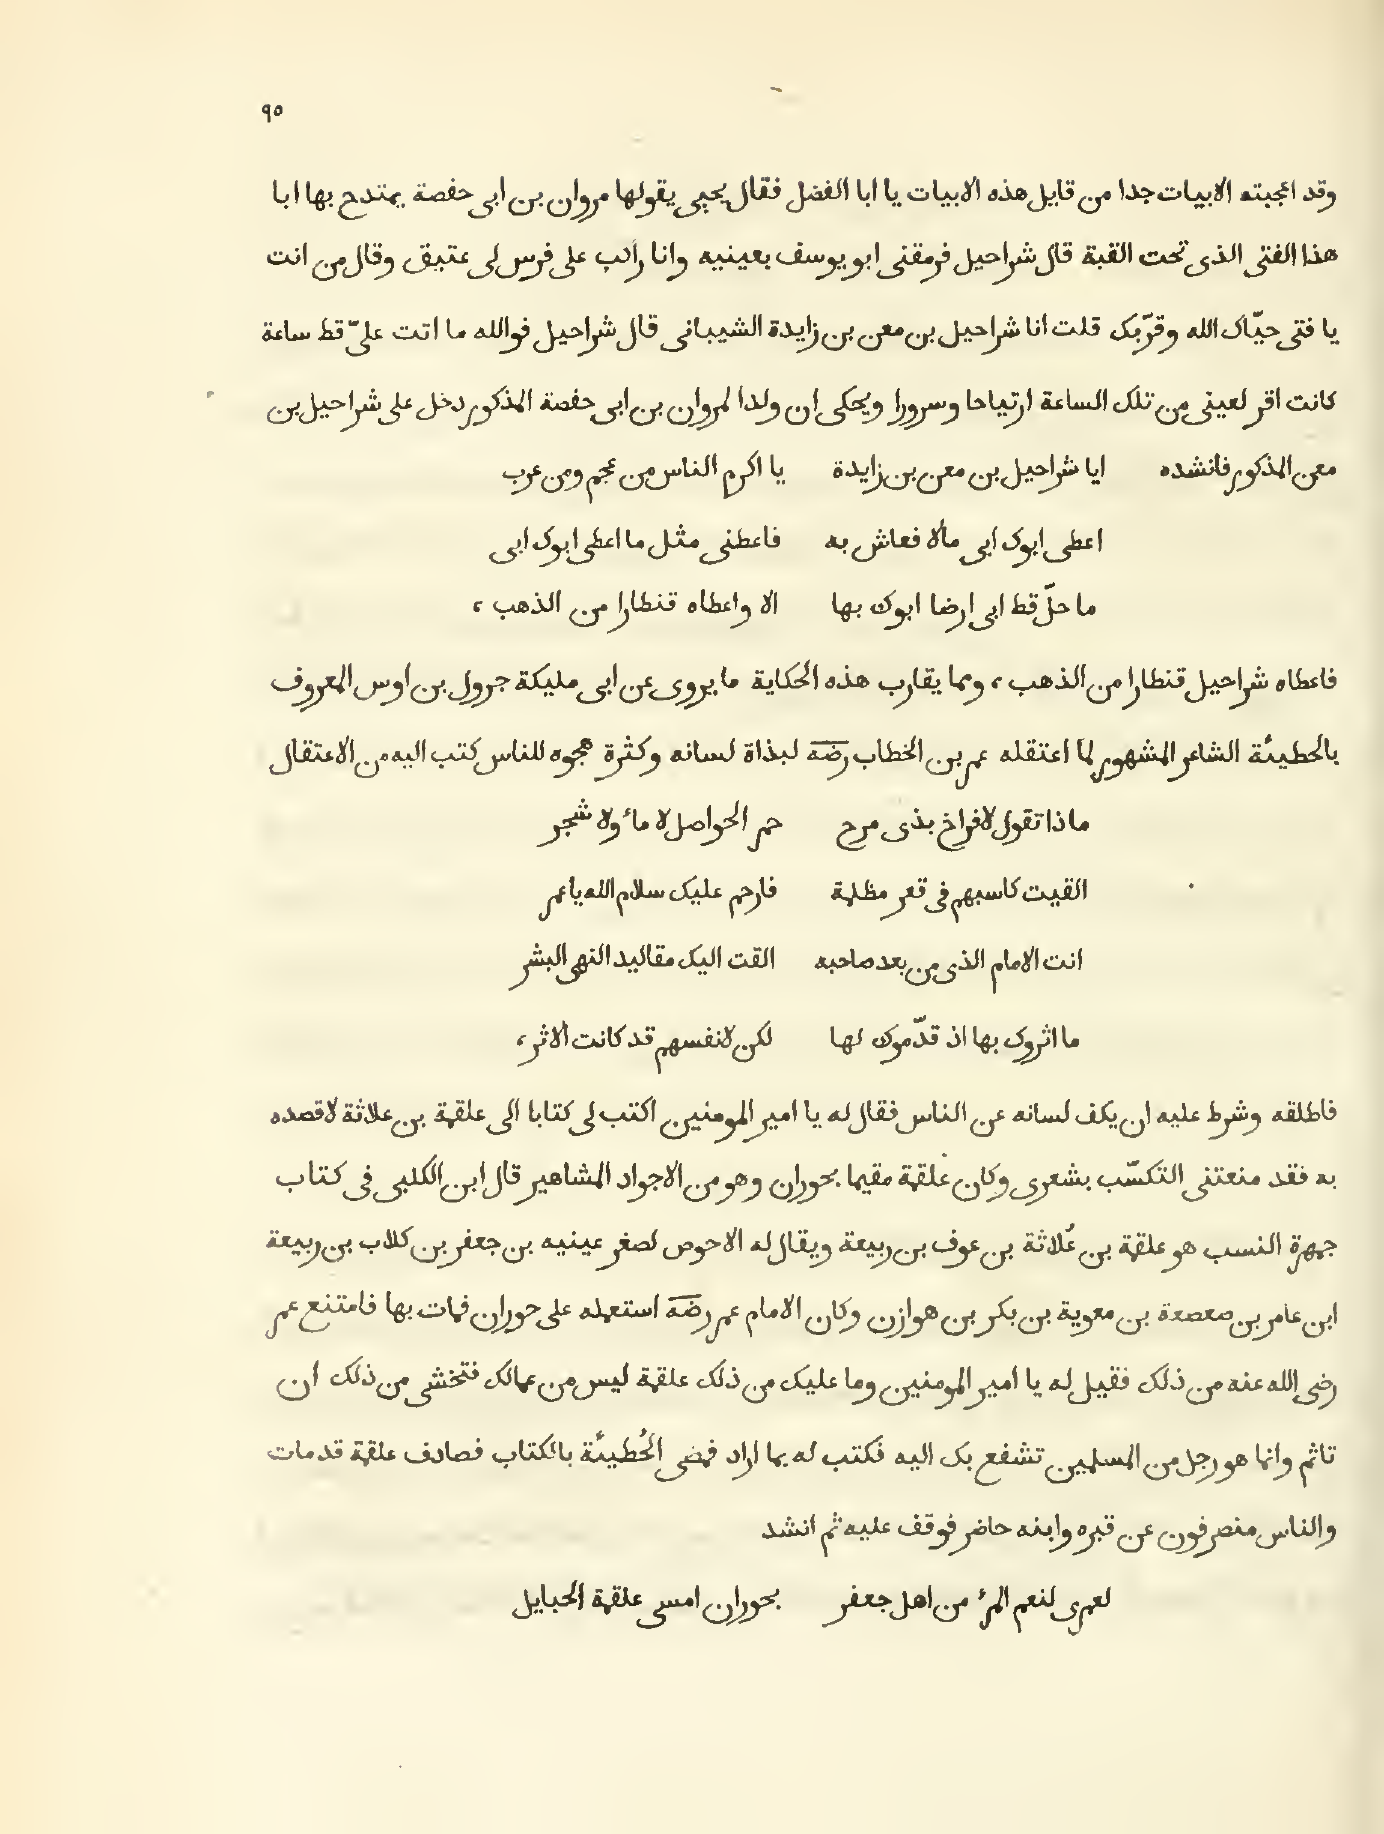 ٩٥
وقد اعجبته الابيات جدا من قايل هذه الابيات يا ابا الفضل فقال يحيى يقولها مروان بن ابى حفصة يمتدح بها ابا
هذا الفتى الذى تحت القبة قال شراحيل فرمقنى ابو يوسف بعينيه وانا راكب على فرس لى عتيق وقال من انت
يا فتى حيّاك الله وقرّبك قلت انا شراحيل بن معن بن زايدة الشيبانى قال شراحيل فوالله ما اتت علىّ قط ساعة
كانت اقر لعينى من تلك الساعة ارتياحا وسرورا ويحكى ان ولدا لمروان بن ابى حفصة المذكور دخل على شراحيل بن
معن المذكور فانشده ايا شراحيل بن معن بن زايدة يا اكرم الناس من عجم ومن عرب
اعطى ابوك ابى مالا فعاش به فاعطنى مثل ما اعطى ابوك ابى
ما حلّ قط ابى ارضا ابوك بها الا واعطاه قنطارا من الذهب،
فاعطاه شراحيل قنطارا من الذهب، ومما يقارب هذه الحكاية ما يروى عن ابى مليكة جرول بن اوس المعروف
بالحطيئة الشاعر المشهور لما اعتقله عمر بن الخطاب رضه لبذاة لسانه وكثرة هجوه للناس كتب اليه من الاعتقال
ماذا تقول لافراخ بذى مرح حمر الحواصل لا مآء ولا شجر
القيت كاسبهم فى قعر مظلمة فارحم عليك سلام الله يا عمر
انت الامام الذى من بعد صاحبه القت اليك مقاليد النهى البشر
ما اثروك بها اذ قدّموك لها لكن لانفسهم قد كانت الاثر،
فاطلقه وشرط عليه ان يكف لسانه عن الناس فقال له يا امير المومنين اكتب لى كتابا الى علقمة بن علاثة لاقصده
به فقد منعتنى التكسّب بشعرى وكان علقمة مقيما بحوران وهو من الاجواد المشاهير قال ابن الكلبى فى كتاب
جمهرة النسب هو علقمة بن عُلاثة بن عوف بن ربيعة ويقال له الاحوص لصغر عينيه بن جعفر بن كلاب بن ربيعة
ابن عامر بن صعصعة بن معوية بن بكر بن هوازن وكان الامام عمر رضه استعمله على حوران فمات بها فامتنع عمر
رضى الله عنه من ذلك فقيل له يا امير المومنين وما عليك من ذلك علقمة ليس من عمالك فتخشى من ذلك ان
تاثم وانما هو رجل من المسلمين تشفع بك اليه فكتب له بما اراد فمضى الحُطيئة بالكتاب فصادف علقمة قد مات
والناس منصرفون عن قبره وابنه حاضر فوقف عليه ثم انشد
لعمرى لنعم المرء من اهل جعفر بحوران امسى علقمة الحبايل